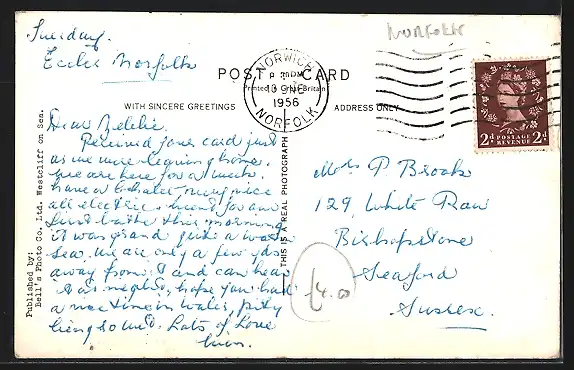 Tuesday.
Eccles Norfolk
Norfolk
POST CARD
Printed in Great Britain
WITH SINCERE GREETINGS
ADDRESS ONLY
NORWICH
1956
NORFOLK
2d POSTAGE REVENUE 2d
Published by:
Bell's Photo Co. Ltd. Westcliff on Sea.
THIS IS A REAL PHOTOGRAPH
Dear
Received your card just
as we were leaving home.
we are here for a week.
have a chalet very nice
all electric. went for our
first bathe this morning
it was grand quite a warm
sea. we are only a few yds
away from it and can hear
it at night. hope you had
a nice time in Wales, pity
being so wet. Lots of Love
Mrs. P Brooks
129, White
Bishopstone
Seaford
Sussex.
£4.00